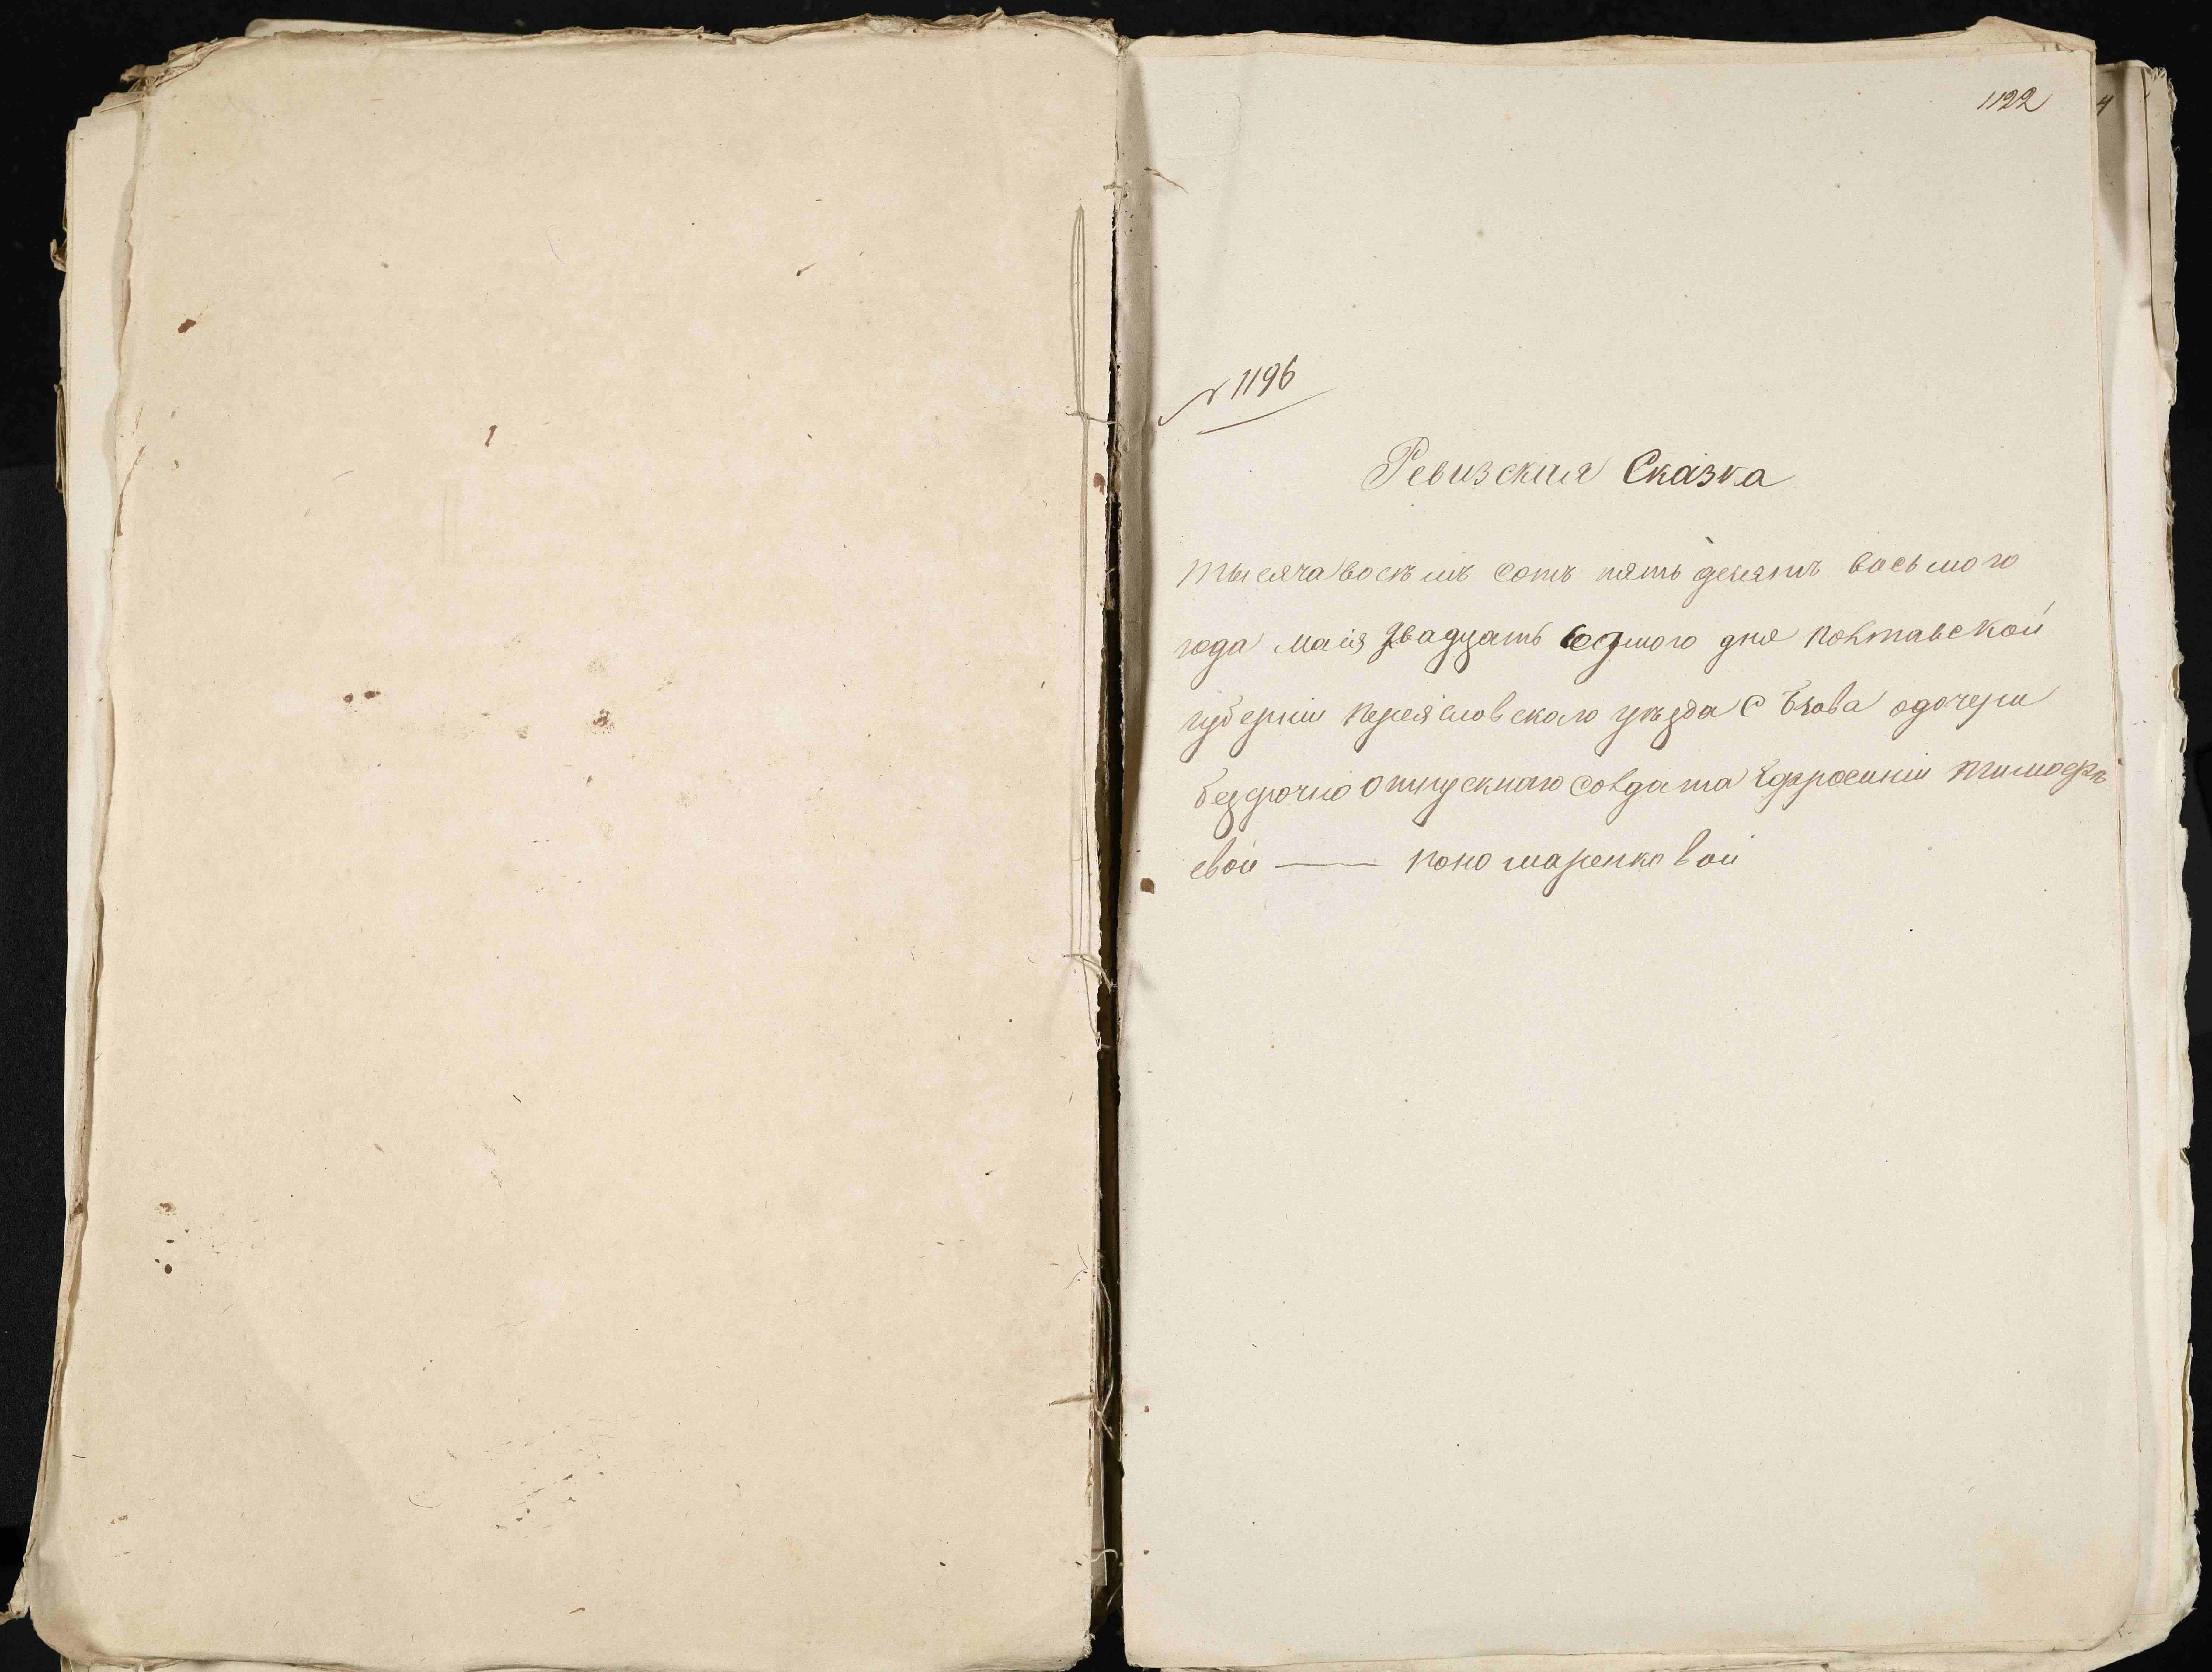 1122
4
№ 1196
Ревизския Сказка
тысяча восѣмъ сотъ пять десятъ восьмого
года маія двадцать седмого дня полтавской
губерніи переяславскаго уѣзда с ...ова одочери
безсрочно отпускнаго солдата Ефросиніи тимофѣ
евой — пономаренковой